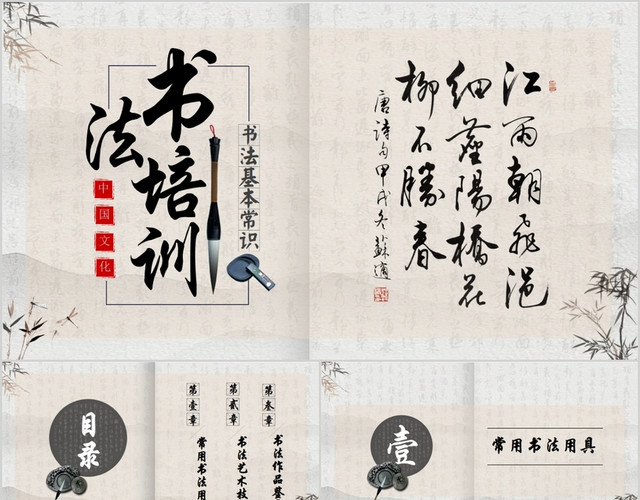 书法培训
中国文化
书法基本常识
江雨朝飛浥
細塵陽橋花
柳不勝春
唐詩句甲戌冬蘇適
目录
第壹章
常用书法用
第贰章
书法艺术技
第叁章
书法作品鉴
壹
常用书法用具